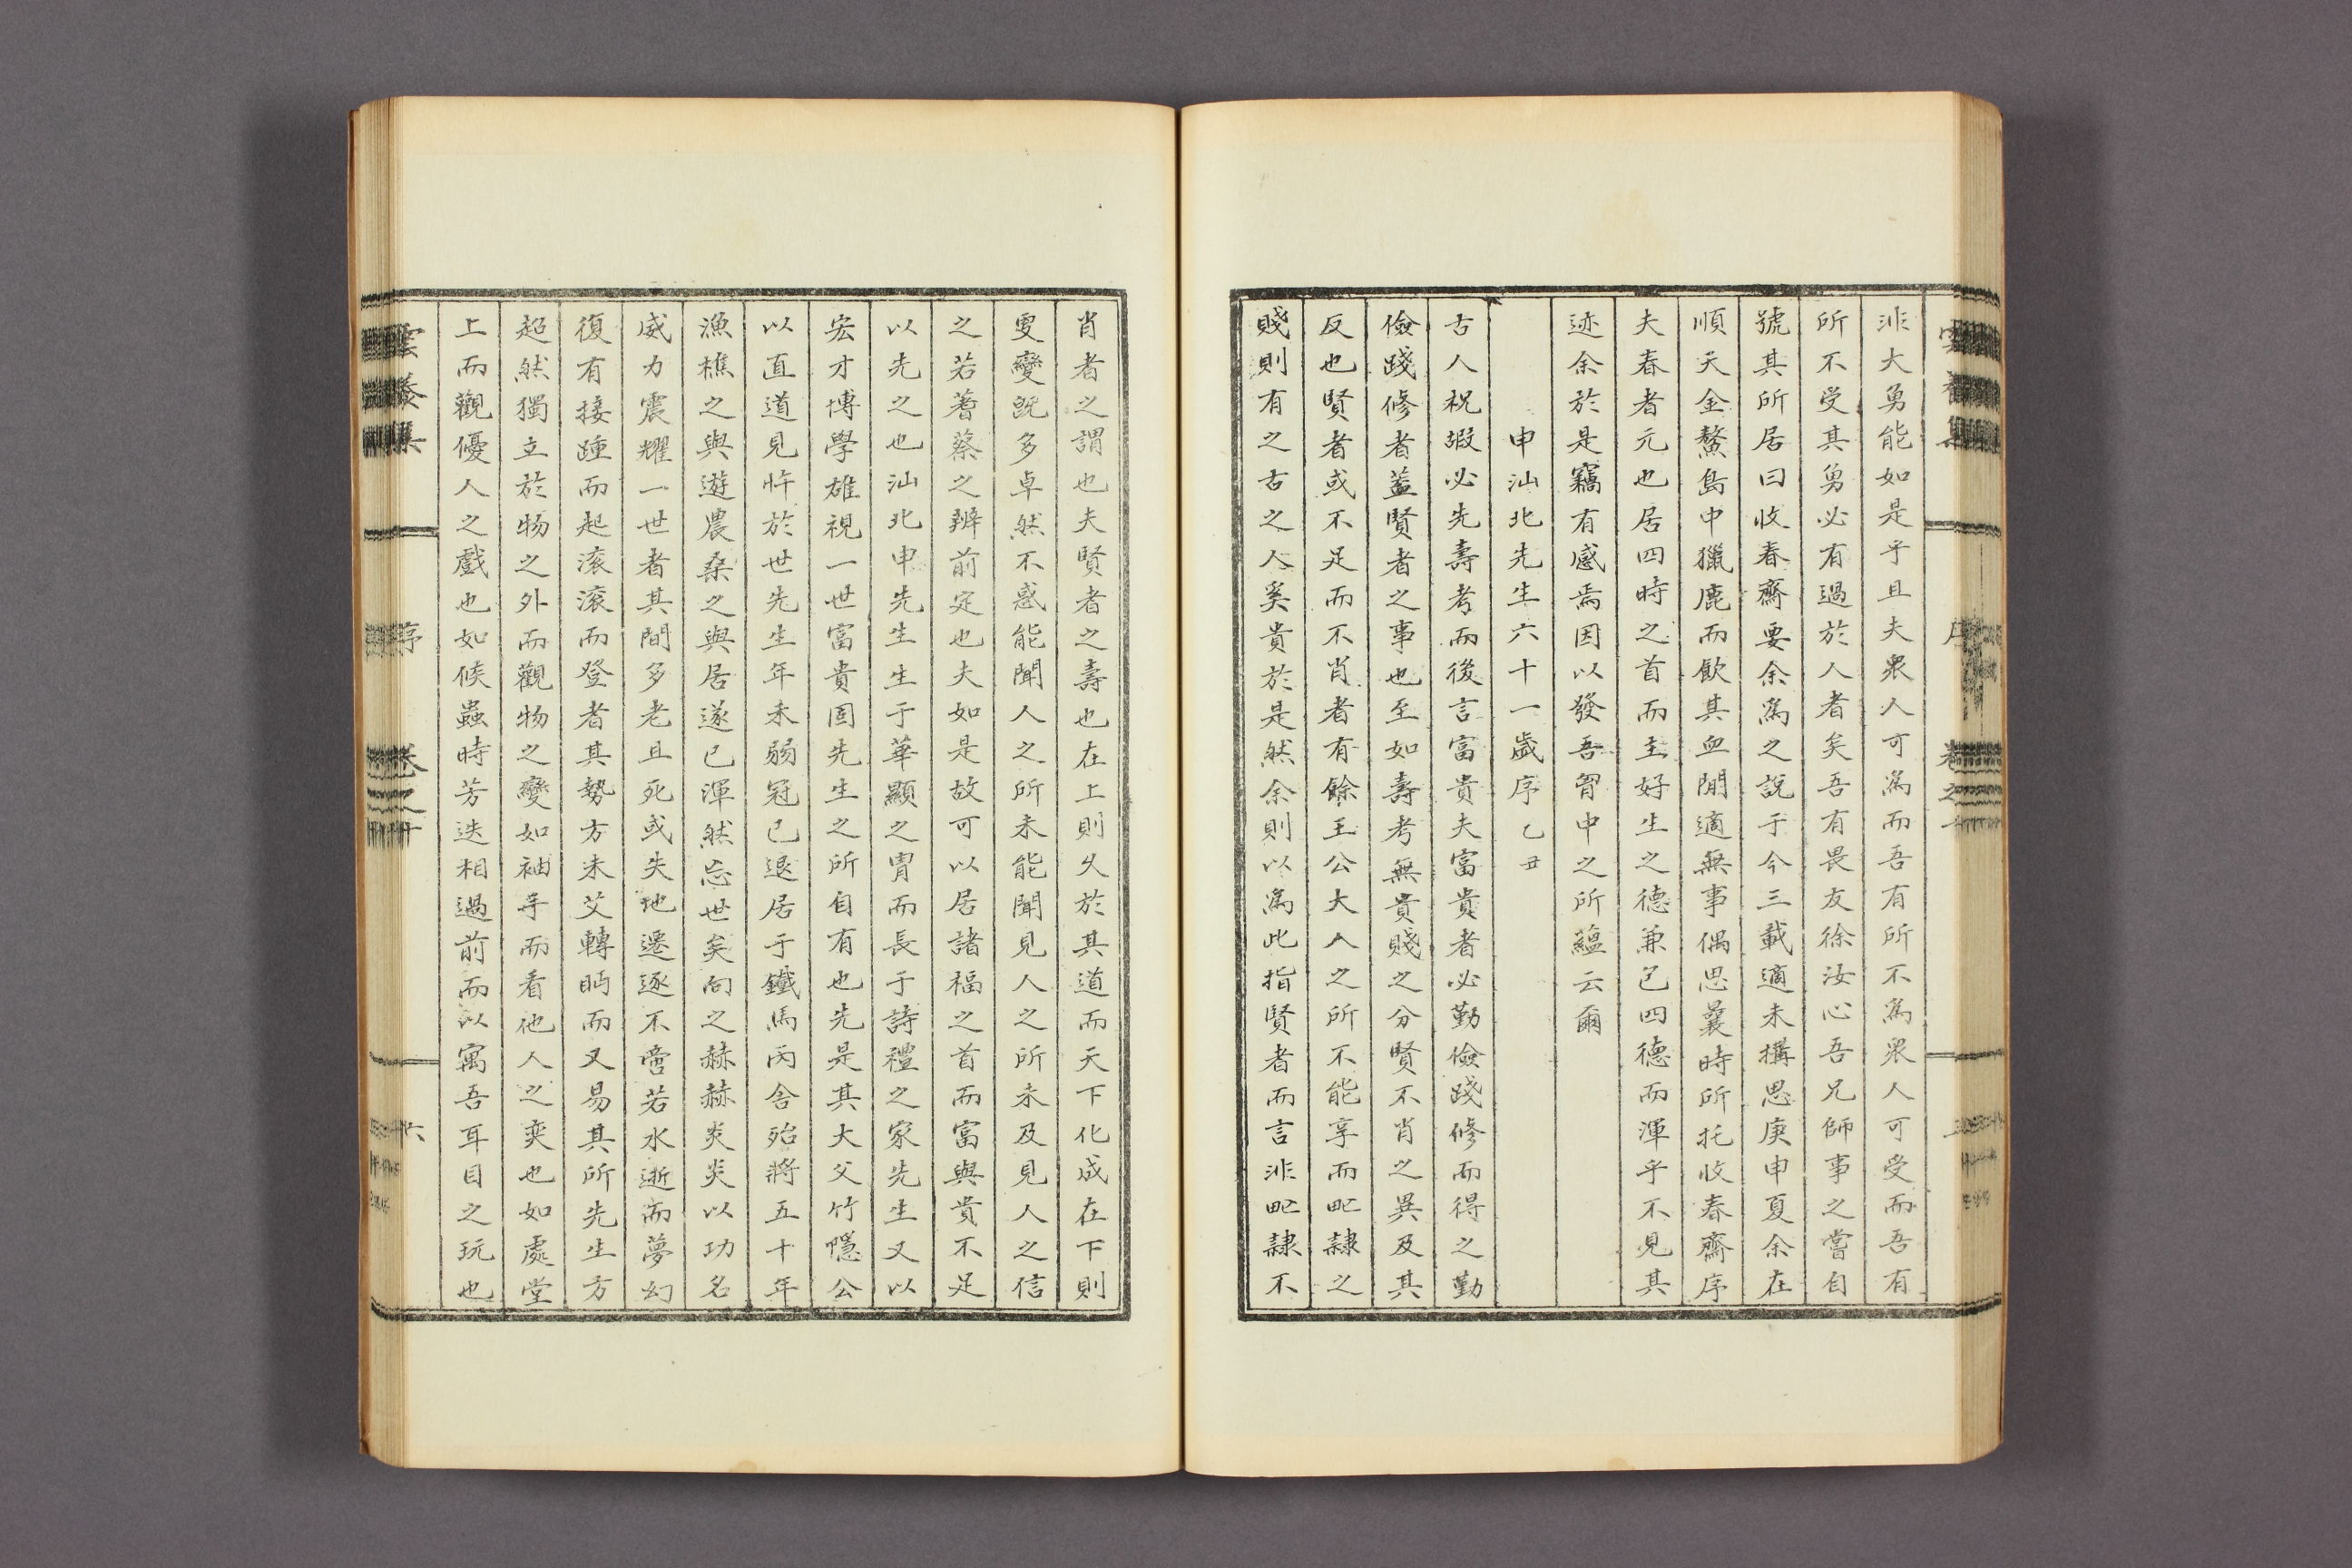 非大勇能如是乎且夫衆人可爲而吾有所不爲衆人可受而吾有
所不受其勇必有過於人者矣吾有畏友徐汝心吾兄師事之嘗自
號其所居曰收春齋要余爲之說于今三載適未搆思庚申夏余在
順天金鰲島中獵鹿而飮其血閒適無事偶思曩時所托收春齋序
夫春者元也居四時之首而主好生之德兼包四德而渾乎不見其
迹余於是竊有感焉因以發吾胷中之所蘊云爾
申汕北先生六十一歲序 乙丑
古人祝嘏必先壽考而後言富貴夫富貴者必勤儉踐修而得之勤
儉踐修者蓋賢者之事也至如壽考無貴賤之分賢不肖之異及其
反也賢者或不足而不肖者有餘王公大人之所不能享而甿隷之
賤則有之古之人奚貴於是然余則以爲此指賢者而言非甿隷不
肖者之謂也夫賢者之壽也在上則久於其道而天下化成在下則
更變旣多卓然不惑能聞人之所未能聞見人之所未及見人之信
之若蓍蔡之辨前定也夫如是故可以居諸福之首而富與貴不足
以先之也汕北申先生生于華顯之胄而長于詩禮之家先生又以
宏才博學雄視一世富貴固先生之所自有也先是其大父竹隱公
以直道見忤於世先生年未弱冠已退居于鐵馬丙舍殆將五十年
漁樵之與遊農桑之與居遂已渾然忘世矣向之赫赫炎炎以功名
威力震耀一世者其間多老且死或失地遷逐不啻若水逝而夢幻
復有接踵而起滾滾而登者其勢方未艾轉眄而又易其所先生方
超然獨立於物之外而觀物之變如袖手而看他人之奕也如處堂
上而觀優人之戲也如候蟲時芳迭相過前而以寓吾耳目之玩也
序
卷之
六